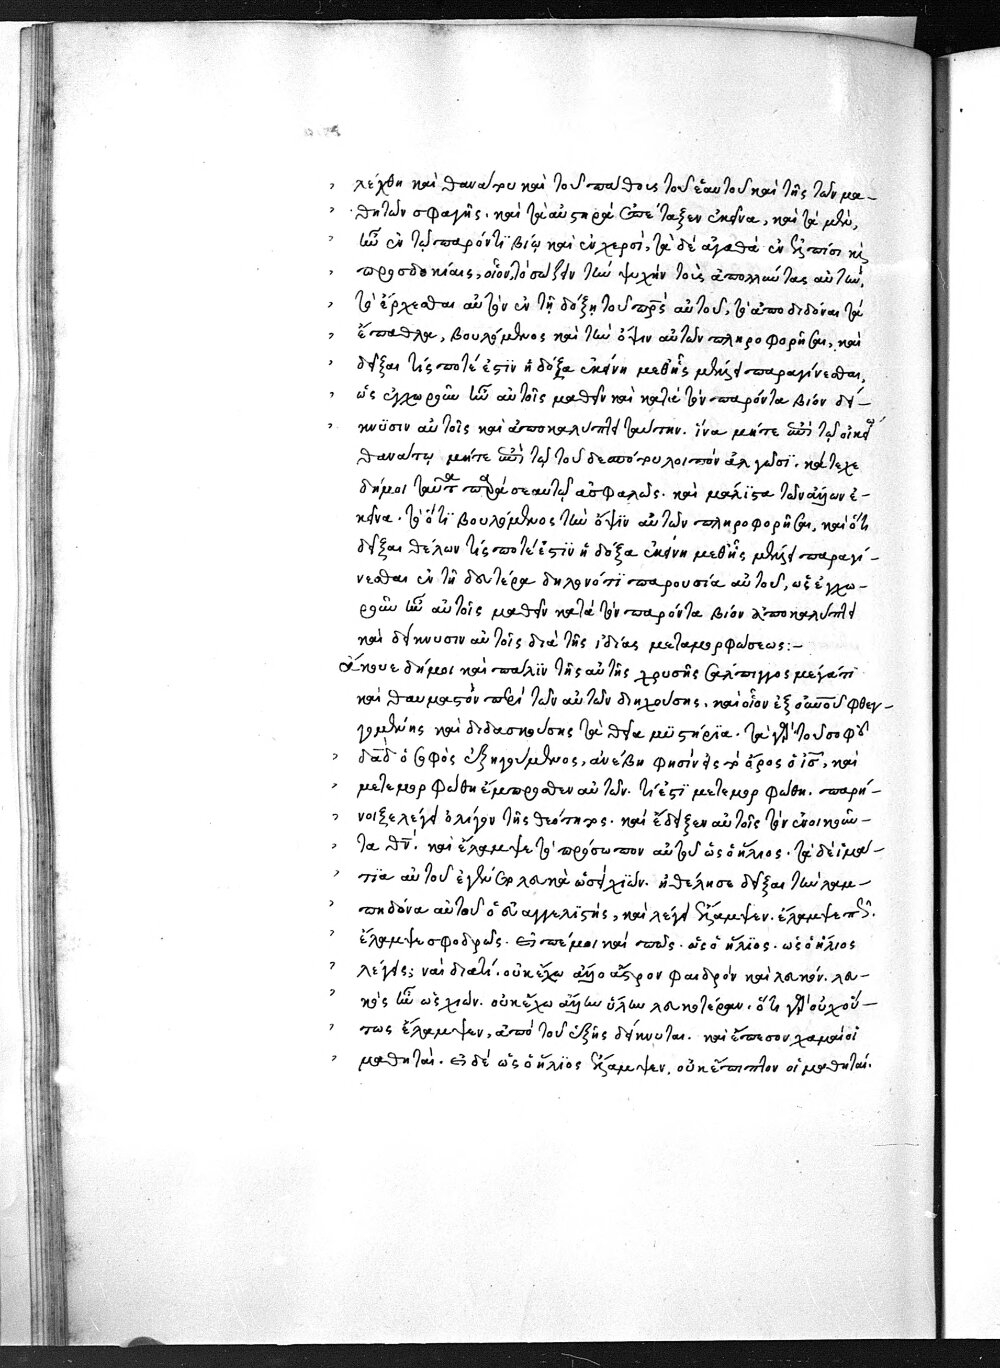 , λέχθη καὶ θανάτου καὶ τοῦ πάθους τοῦ ἑαυτοῦ καὶ τῆς τῶν μα-
, θητῶν σφαγῆς. καὶ τὰ αὐστηρὰ ἐπέταξεν ἐκεῖνα, καὶ τὰ μὲν,
, ἦν ἐν τῷ παρόντι βίῳ καὶ ἐν χερσί, τὰ δὲ ἀγαθὰ ἐν ἐλπίσι καὶ
, προσδοκίαις, οἷον, τὸ σώζειν τὴν ψυχὴν τοὺς ἀπολλύντας αὐτὴν,
, τὸ ἔρχεσθαι αὐτὸν ἐν τῇ δόξῃ τοῦ πρς αὐτοῦ, τὸ ἀποδιδόναι τὰ
, ἔπαθλα, βουλόμενος καὶ τὴν ὄψιν αὐτῶν πληροφορῆσαι, καὶ
, δεῖξαι τίς ποτέ ἐστιν ἡ δόξα ἐκείνη μεθ' ἧς μέλλει παραγίνεσθαι,
, ὡς ἐγχωροῦν ἦν αὐτοῖς μαθεῖν καὶ κατὰ τὸν παρόντα βίον δεί-
, κνυσιν αὐτοῖς καὶ ἀποκαλύπτει ταύτην. ἵνα μήτε ἐπὶ τῷ οἰκείῳ
θανάτῳ μήτε ἐπὶ τῷ τοῦ δεσπότου λοιπὸν ἀλγῶσι. κάτεχε
δή μοι ταῦτα παρὰ σεαυτῷ ἀσφαλῶς. καὶ μάλιστα τῶν ἄλλων ἐ-
κεῖνα. τὸ ὅτι βουλόμενος τὴν ὄψιν αὐτῶν πληροφορῆσαι, καὶ ὅτι
δεῖξαι θέλων τίς ποτέ ἐστιν ἡ δόξα ἐκείνη μεθ' ἧς μέλλει παραγί-
νεσθαι ἐν τῇ δευτέρα δηλονότι παρουσία αὐτοῦ, ὡς ἐγχω-
ροῦν ἦν αὐτοῖς μαθεῖν κατὰ τὸν παρόντα βίον ἀποκαλύπτει
καὶ δείκνυσιν αὐτοῖς διὰ τῆς ἰδίας μεταμορφώσεως:-
ἄκουε δή μοι καὶ πάλιν τῆς αὐτῆς χρυσῆς σάλπιγγος μέγα τι
καὶ θαυμαστὸν περὶ τῶν αὐτῶν διηχούσης. καὶ οἷον ἐξ οὐνοῦ φθεγ-
γομένης καὶ διδασκούσης τὰ θεῖα μυστήρια. τὰ γὰρ τοῦ σοφοῦ
, δαδ ὁ σοφὸς ἐξηγούμενος, ἀνέβη φησὶν εἰς τὸ ὄρος ὁ ις, καὶ
, μετεμορφώθη ἔμπροσθεν αὐτῶν. τί ἐστι μετεμορφώθη. παρή-
, νοιξε λέγει ὀλίγον τῆς θεότητος. καὶ ἔδειξεν αὐτοῖς τὸν ἐνοικοῦν-
, τα θν. καὶ ἔλαμψε τὸ πρόσωπον αὐτοῦ ὡς ὁ ἥλιος. τὰ δὲ ἱμά-
, τια αὐτοῦ ἐγένετο λευκὰ ὡσεὶ χιών. ἠθέλησε δεῖξαι τὴν λαμ-
, πηδόνα αὐτοῦ ὁ εὐαγγελιστής, καὶ λέγει ἔλαμψεν. ἔλαμψε πῶς.
, ἔλαμψε σφοδρῶς. εἰπέ μοι καὶ πῶς. ὡς ὁ ἥλιος. ὡς ὁ ἥλιος
, λέγεις; ναὶ διατί. οὐκ ἔχω ἄλλο ἄστρον φαιδρὸν καὶ λευκόν. λευ-
, κὸς ἦν ὡς χιών. οὐκ ἔχω ἄλλην ὕλην λευκοτέραν. ὅτι γὰρ οὐχ οὕ-
, τως ἔλαμψεν, ἀπὸ τοῦ ἑξῆς δείκνυται. καὶ ἔπεσον χαμαὶ οἱ
, μαθηταί. εἰ δὲ ὡς ὁ ἥλιος ἔλαμψεν, οὐκ ἔπιπτον οἱ μαθηταί.